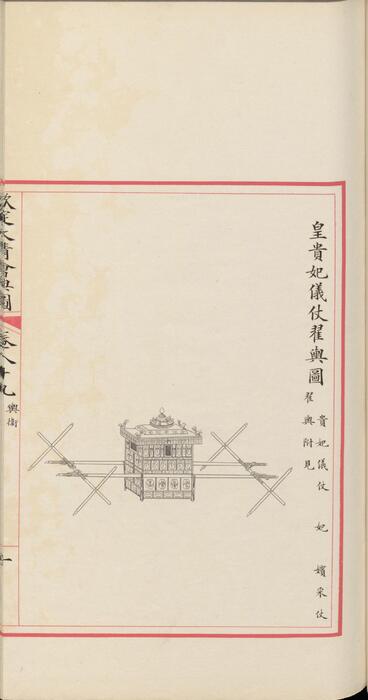 皇貴妃儀仗翟輿圖
貴妃儀仗 妃 嬪采仗
翟輿附見
欽定大清會典圖 卷八十九 輿衛